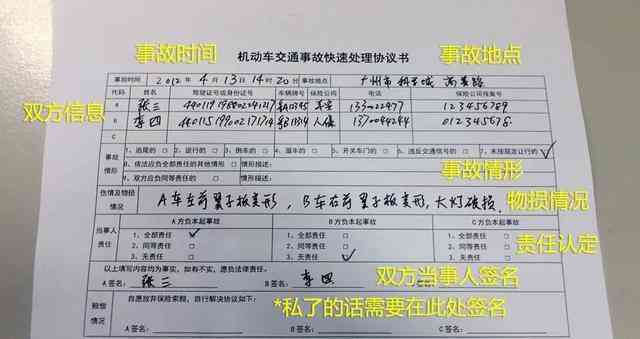 事故时间
事故地点
机动车交通事故快速处理协议书
事故时间 2012年4月13日14时20分 事故地点 广州市科学城
双方信息
代码 姓名 驾驶证号或身份证号 车辆牌号 保险公司 电话 保险公司报案号
A 张三 平安 1330022977 123456789
B 李四 人保 1370044244 012345678
C
事故情形
1、追尾的 □ 2、逆行的 □ 3、倒车的 □ 4、溜车的 □ 5、开关车门的 □ 6、违反交通信号的 □ 7、未按规定让行的 ✓
8、依法应负全部责任的其他情形 □ 情形描述:
9、双方应负同等责任的 □ 情形描述:
事故情形
伤情及物损情况 A车左前翼子板变形,B车右前翼子板变形,大灯破损.
物损情况
当事人责任
A方负本起事故 B方负本起事故 C方负本起事故
1、全部责任 ✓ 1、全部责任 □ 1、全部责任 □
2、同等责任 □ 2、同等责任 □ 2、同等责任 □
3、无责任 □ 3、无责任 ✓ 3、无责任 □
责任认定
以上填写内容均为事实,如有不实,愿负法律责任。
A签名: 张三 B签名: 李四
双方当事人签名
赔偿情况 自愿放弃保险索赔,自行解决协议如下:
*私了的话需要在此处签名
A签名: B签名: C签名: